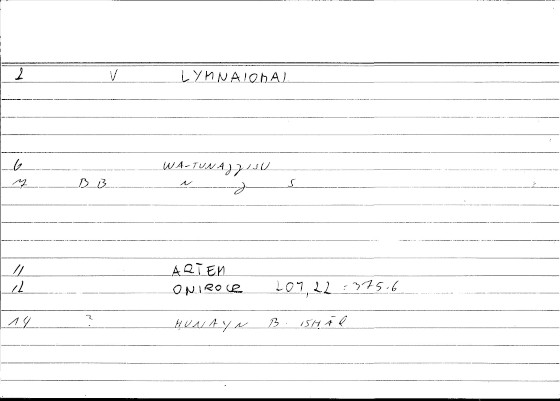 2 V LYMNAIOMAI
6 WA-TUNAǧǧISU
7 BB N ǧ S
11 ARTEM
12 ONIROCR 207,22 : 375.6
14 ? HUNAYN B. ISHĀQ